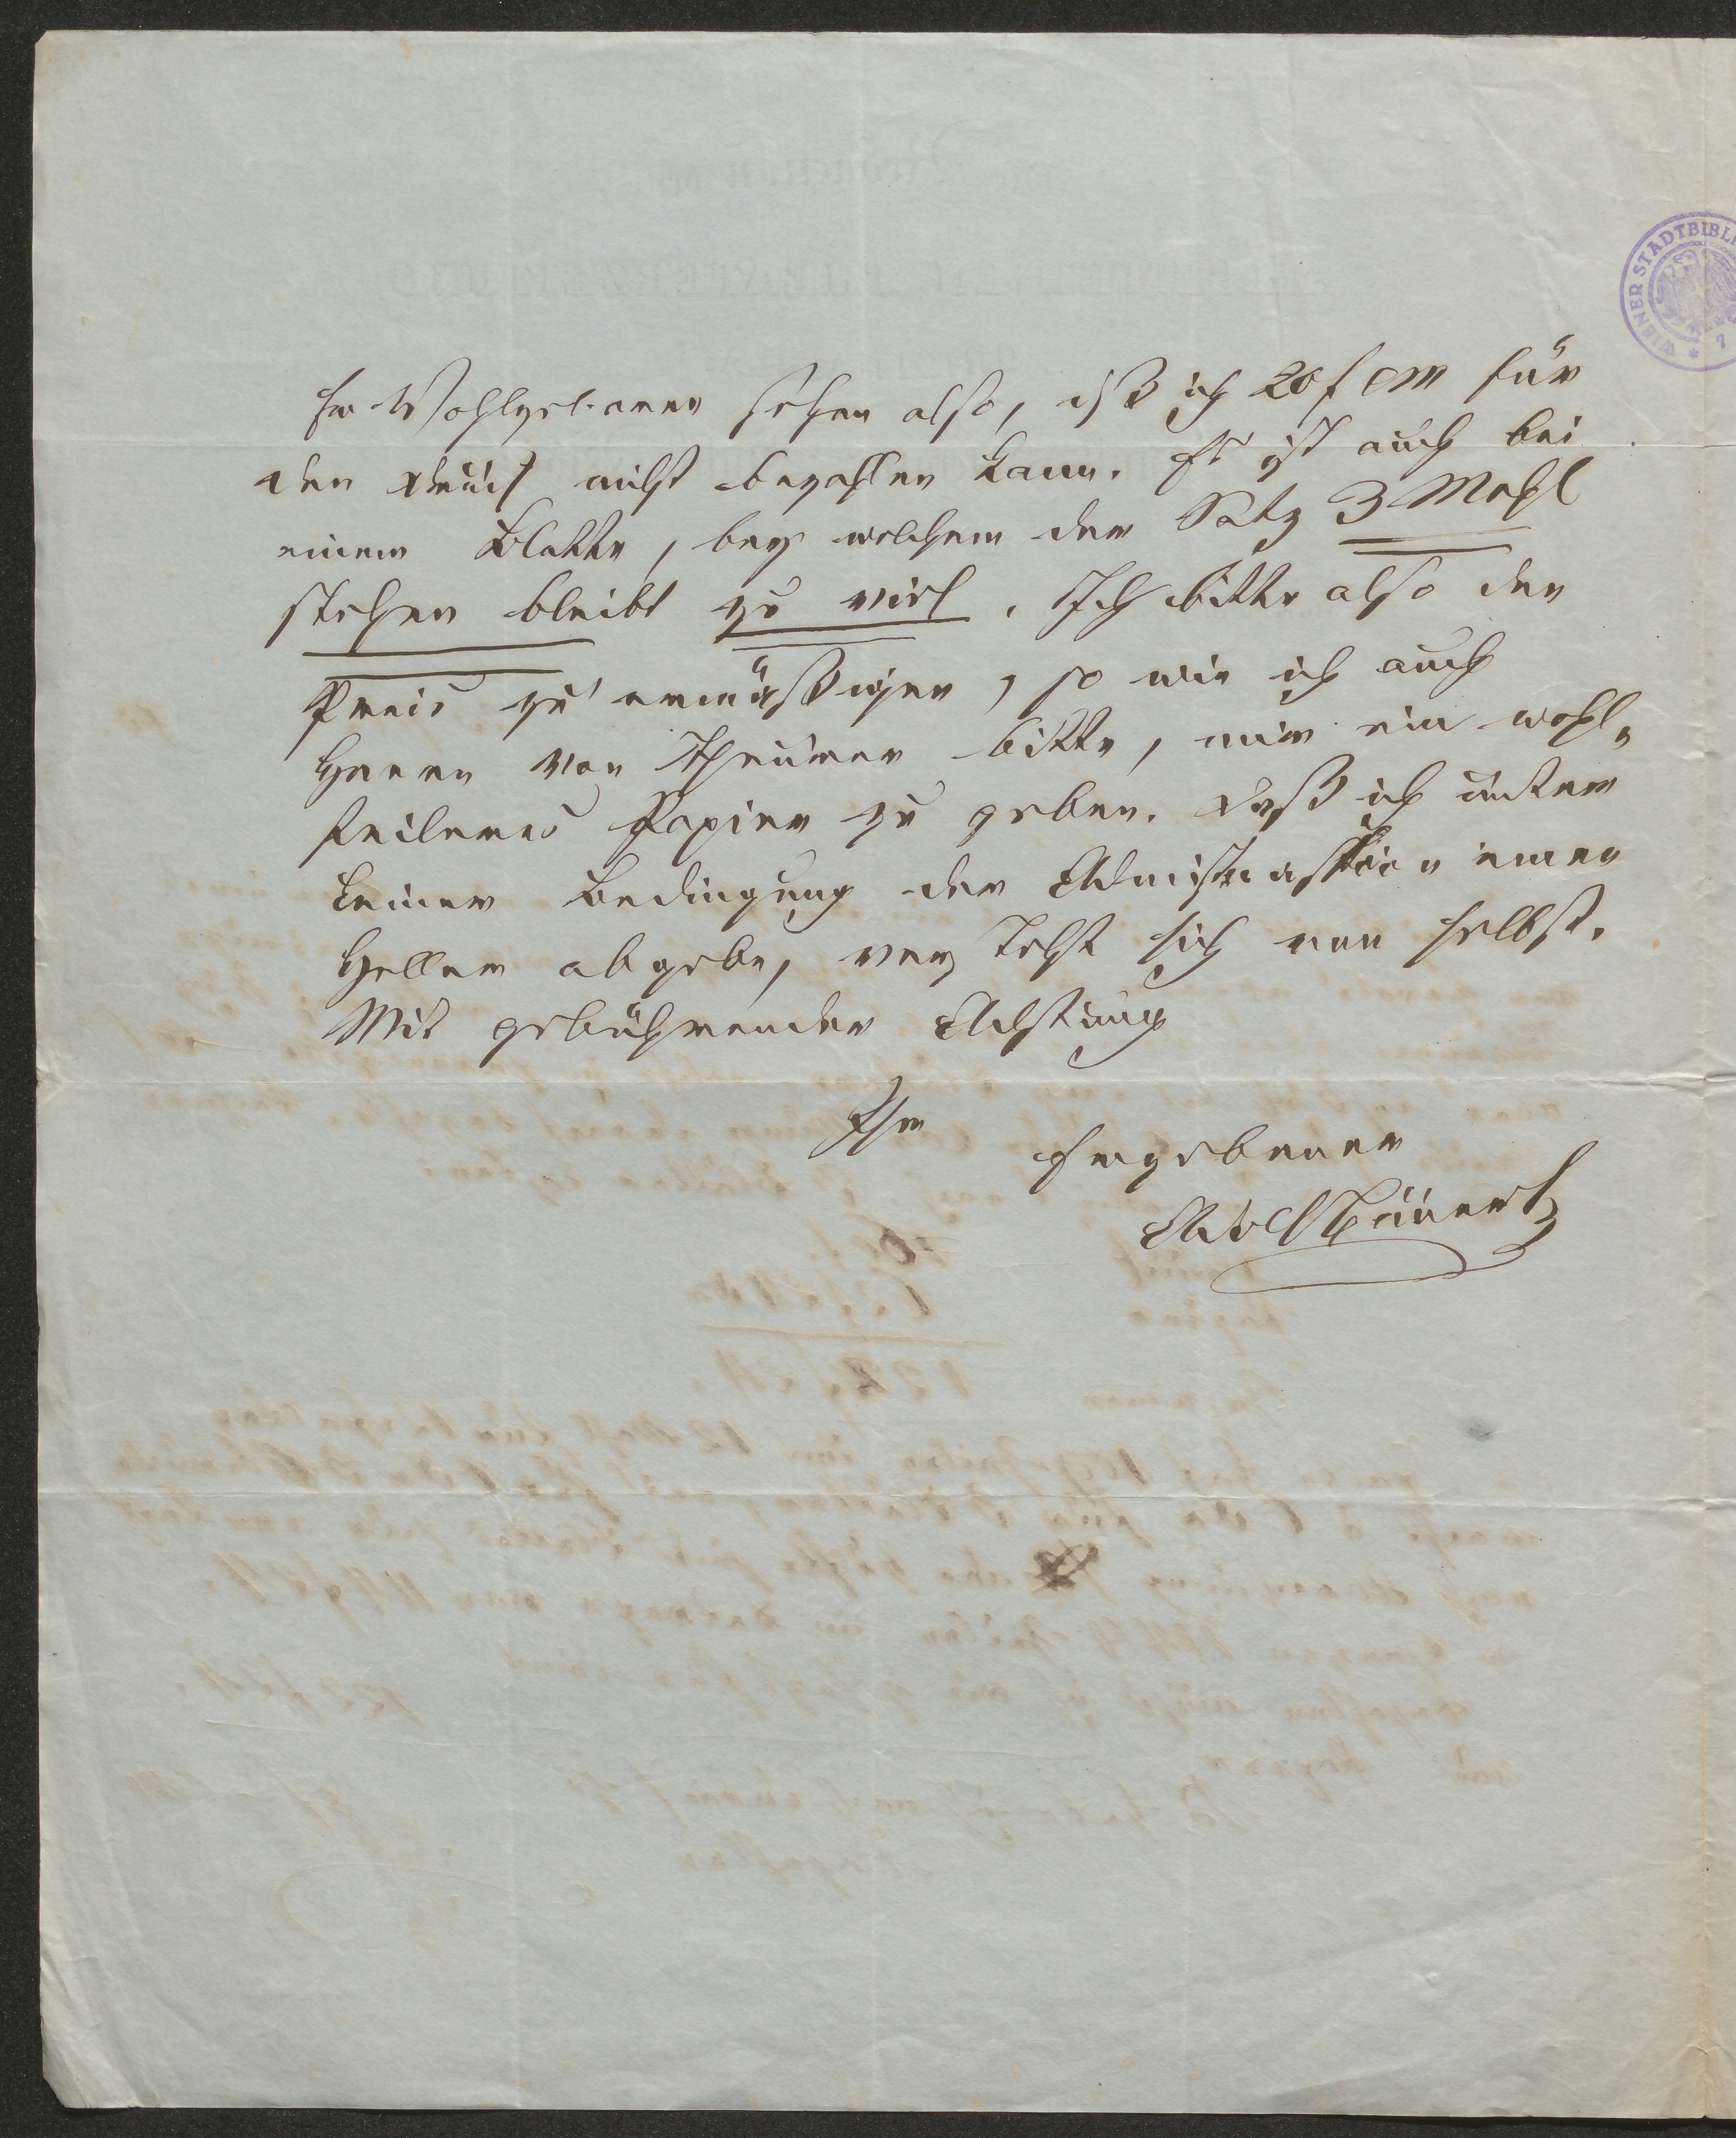 Ew Wohlgeboren sehen also, daß ich 20 f CM für
den Druck nicht bezahlen kann. Es ist auch bei
einem Blatte, bey welchem der Satz 3 Mahl
stehen bleibt zu viel. Ich bitte also den
Preis zu ermäßigen, so wie ich auch
Herrn von bitte, mir ein wohl„
feileres Papier zu geben. Daß ich unter
keiner Bedingung der einen
Heller abgebe, versteht sich von selbst.
Mit gebührender Achtung
Ihr
Ergebener
Adolf Bäuerle
WIENER STADTBIBL